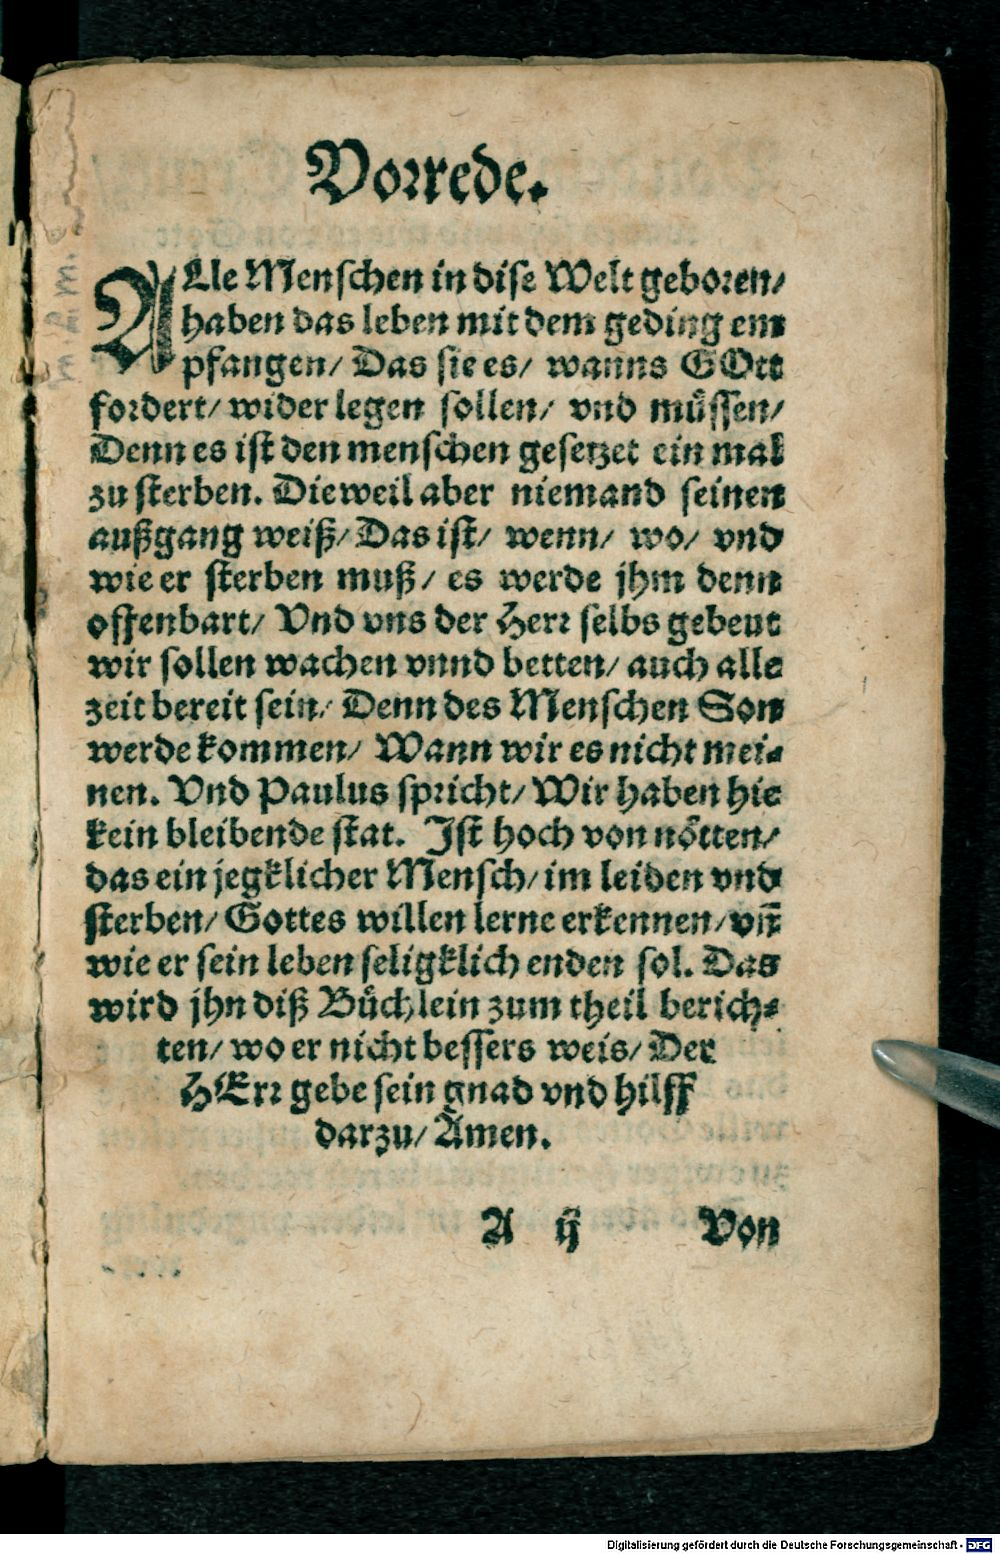 Vorrede.
ALle Menschen in dise Welt geboren/
haben das leben mit dem geding em
pfangen/ Das sie es/ wanns GOtt
fordert/ wider legen sollen/ vnd müssen/
Denn es ist den menschen gesetzet ein mal
zu sterben. Dieweil aber niemand seinen
außgang weiß/ Das ist/ wenn/ wo/ vnd
wie er sterben muß/ es werde jhm denn
offenbart/ Vnd vns der Herr selbs gebeut
wir sollen wachen vnnd betten/ auch alle
zeit bereit sein/ Denn des Menschen Son
werde kommen/ Wann wir es nicht mei-
nen. Vnd Paulus spricht/ Wir haben hie
kein bleibende stat. Ist hoch von nötten/
das ein jegklicher Mensch/ im leiden vnd
sterben/ Gottes willen lerne erkennen/ vñ
wie er sein leben seligklich enden sol. Das
wird jhn diß Büchlein zum theil berich-
ten/ wo er nicht bessers weis/ Der
HErr gebe sein gnad vnd hilff
darzu/ Amen.
A ij Von
Digitalisierung gefördert durch die Deutsche Forschungsgemeinschaft - DFG